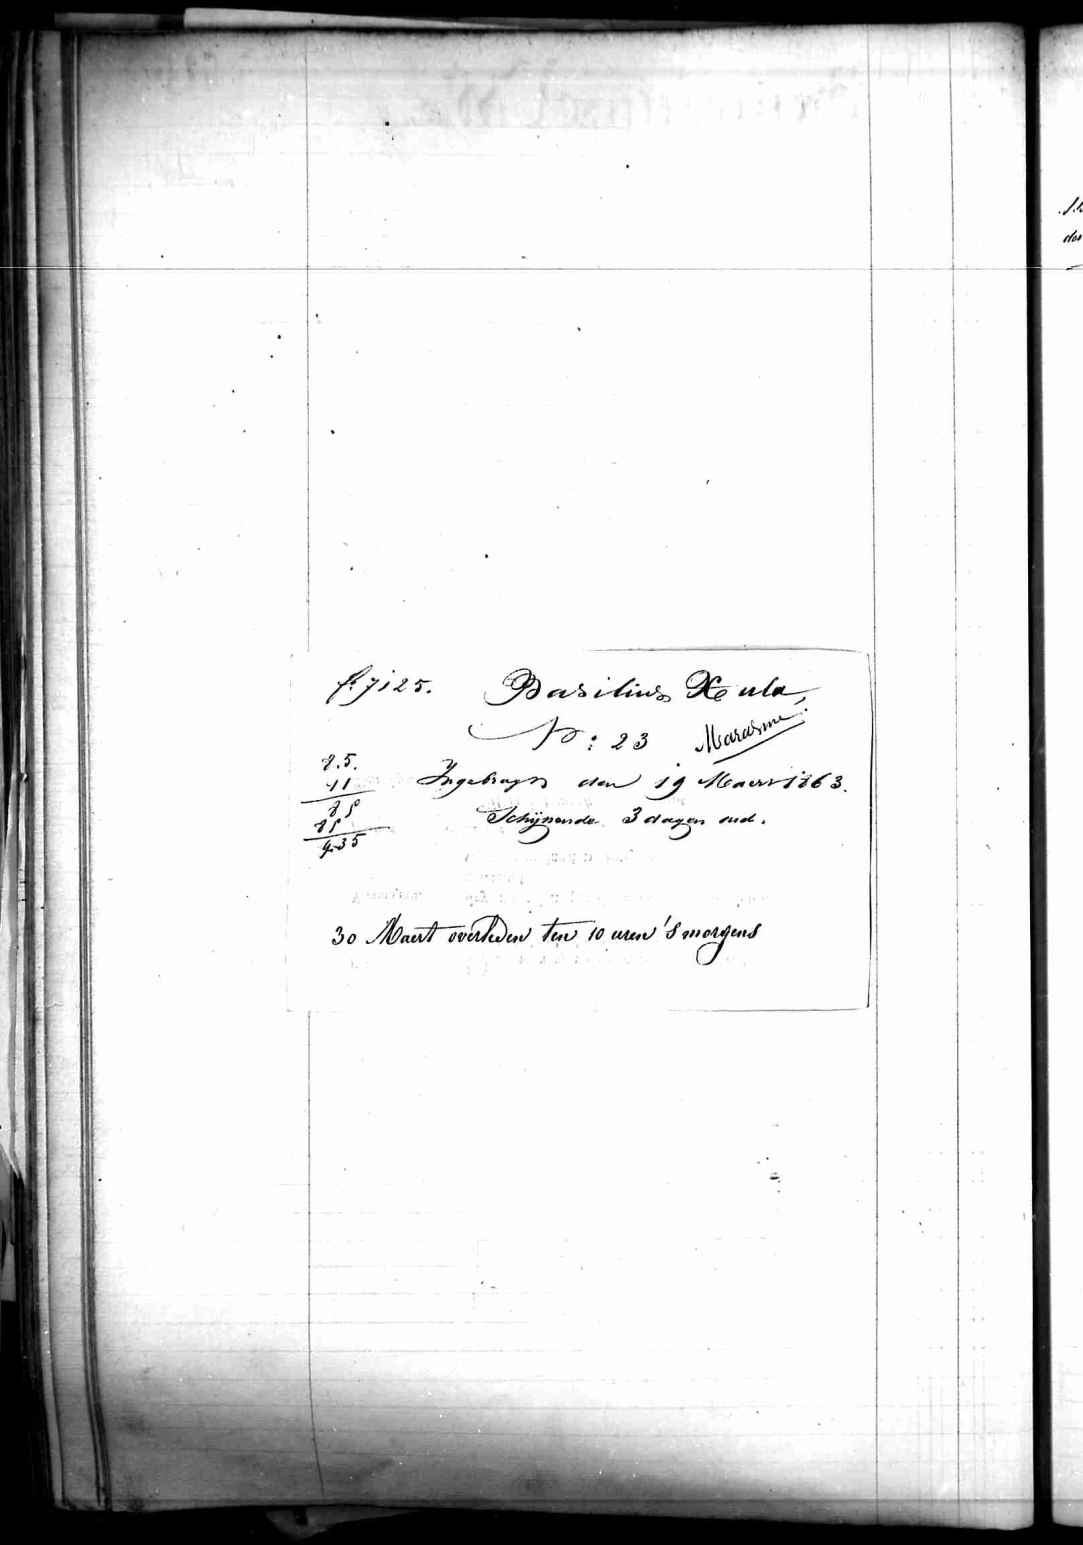 f. 7125. Basilius Xula,
N°: 23 Marasme.
8.5. Ingebragt den 19 Maert 1863.
11
85 Schijnende 3 dagen oud.
85
9.35
30 Maert overleden ten 10 uren 's morgens